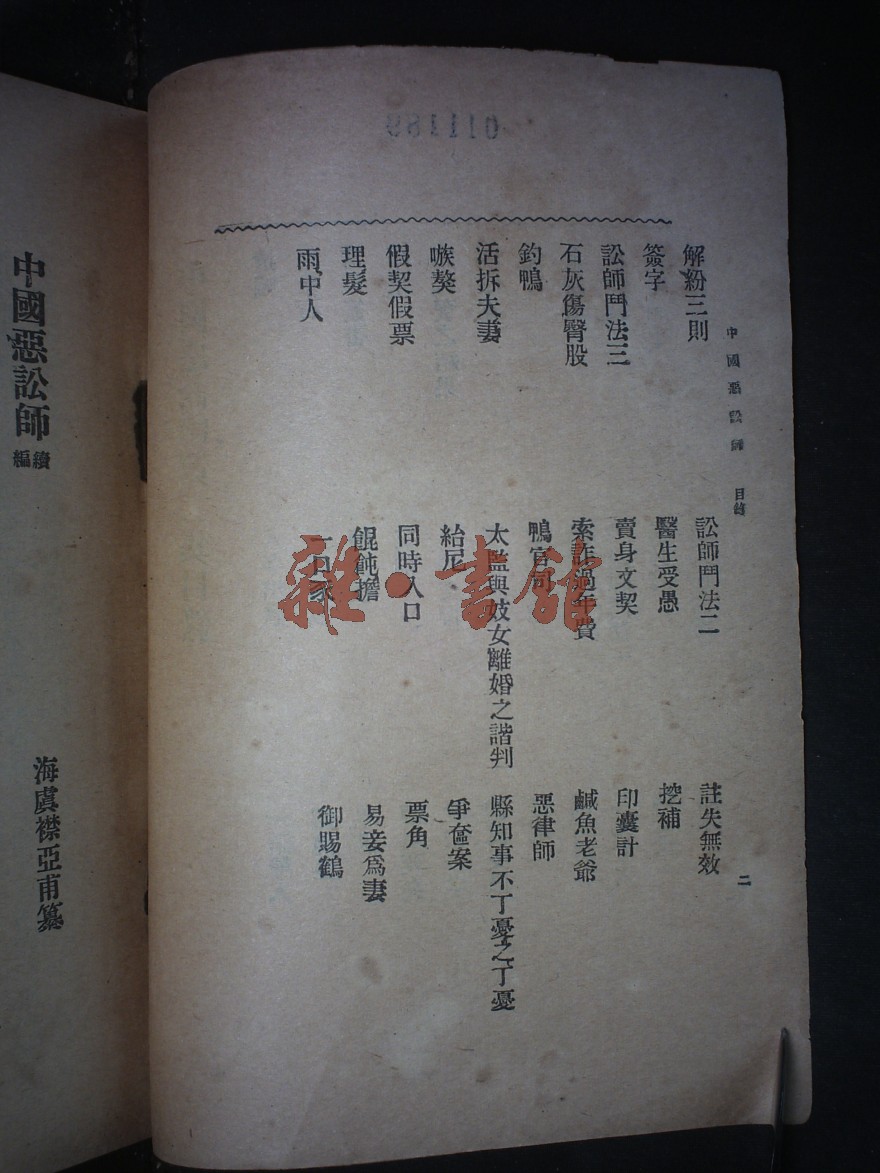 中國惡訟師 目錄 二
解紛三則 訟師鬥法二 註失無效
簽字 醫生受愚 挖補
訟師鬥法三 賣身文契 印囊計
石灰傷臀股 索詐過年費 鹹魚老爺
釣鴨 鴨官司 惡律師
活拆夫妻 太監與妓女離婚之諧判 縣知事不丁憂之丁憂
嗾獒 給尼 爭奩案
假契假票 同時入口 票角
理髮 餛飩擔 易妾爲妻
雨中人 一口家 御賜鶴
中國惡訟師 續編
海虞襟亞甫纂
雜·書館
011189